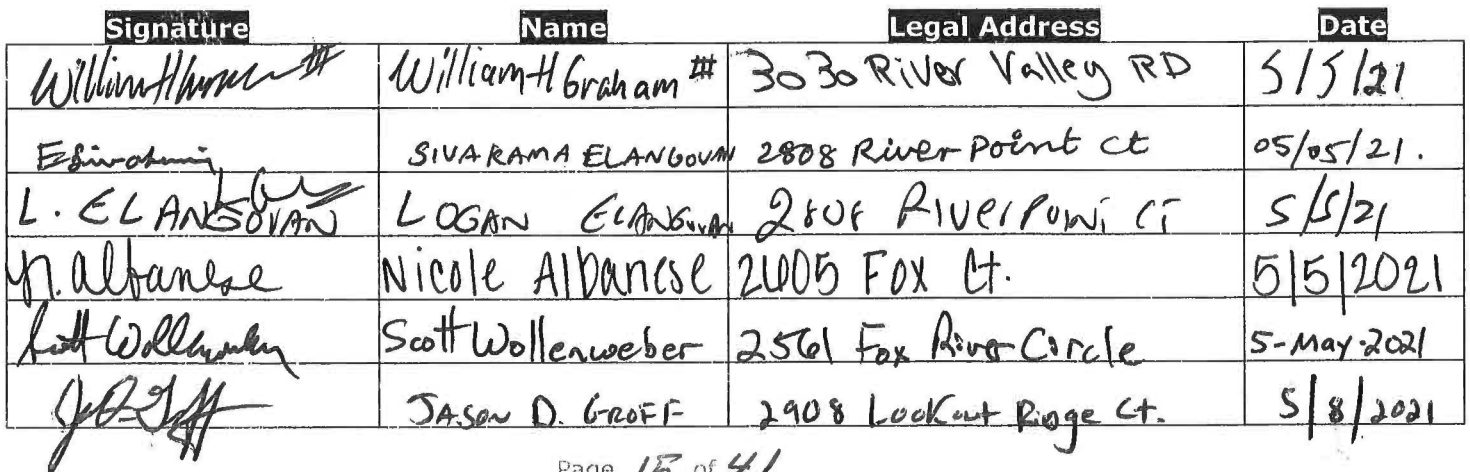 Signature Name Legal Address Date
William H Graham III William H Graham III 3030 River Valley RD 5/5/21
SIVARAMA ELANGOVAN 2808 River Point Ct 05/05/21.
L. ELANGOVAN LOGAN ELANGOVAN 2808 RIVER POINT CT 5/5/21
N. Albanese Nicole Albanese 2605 Fox Ct. 5/5/2021
Scott Wollenweber Scott Wollenweber 2561 Fox River Circle 5-May-2021
JASON D. GROFF 2908 Lookout Ridge Ct. 5/8/2021
Page 15 of 41